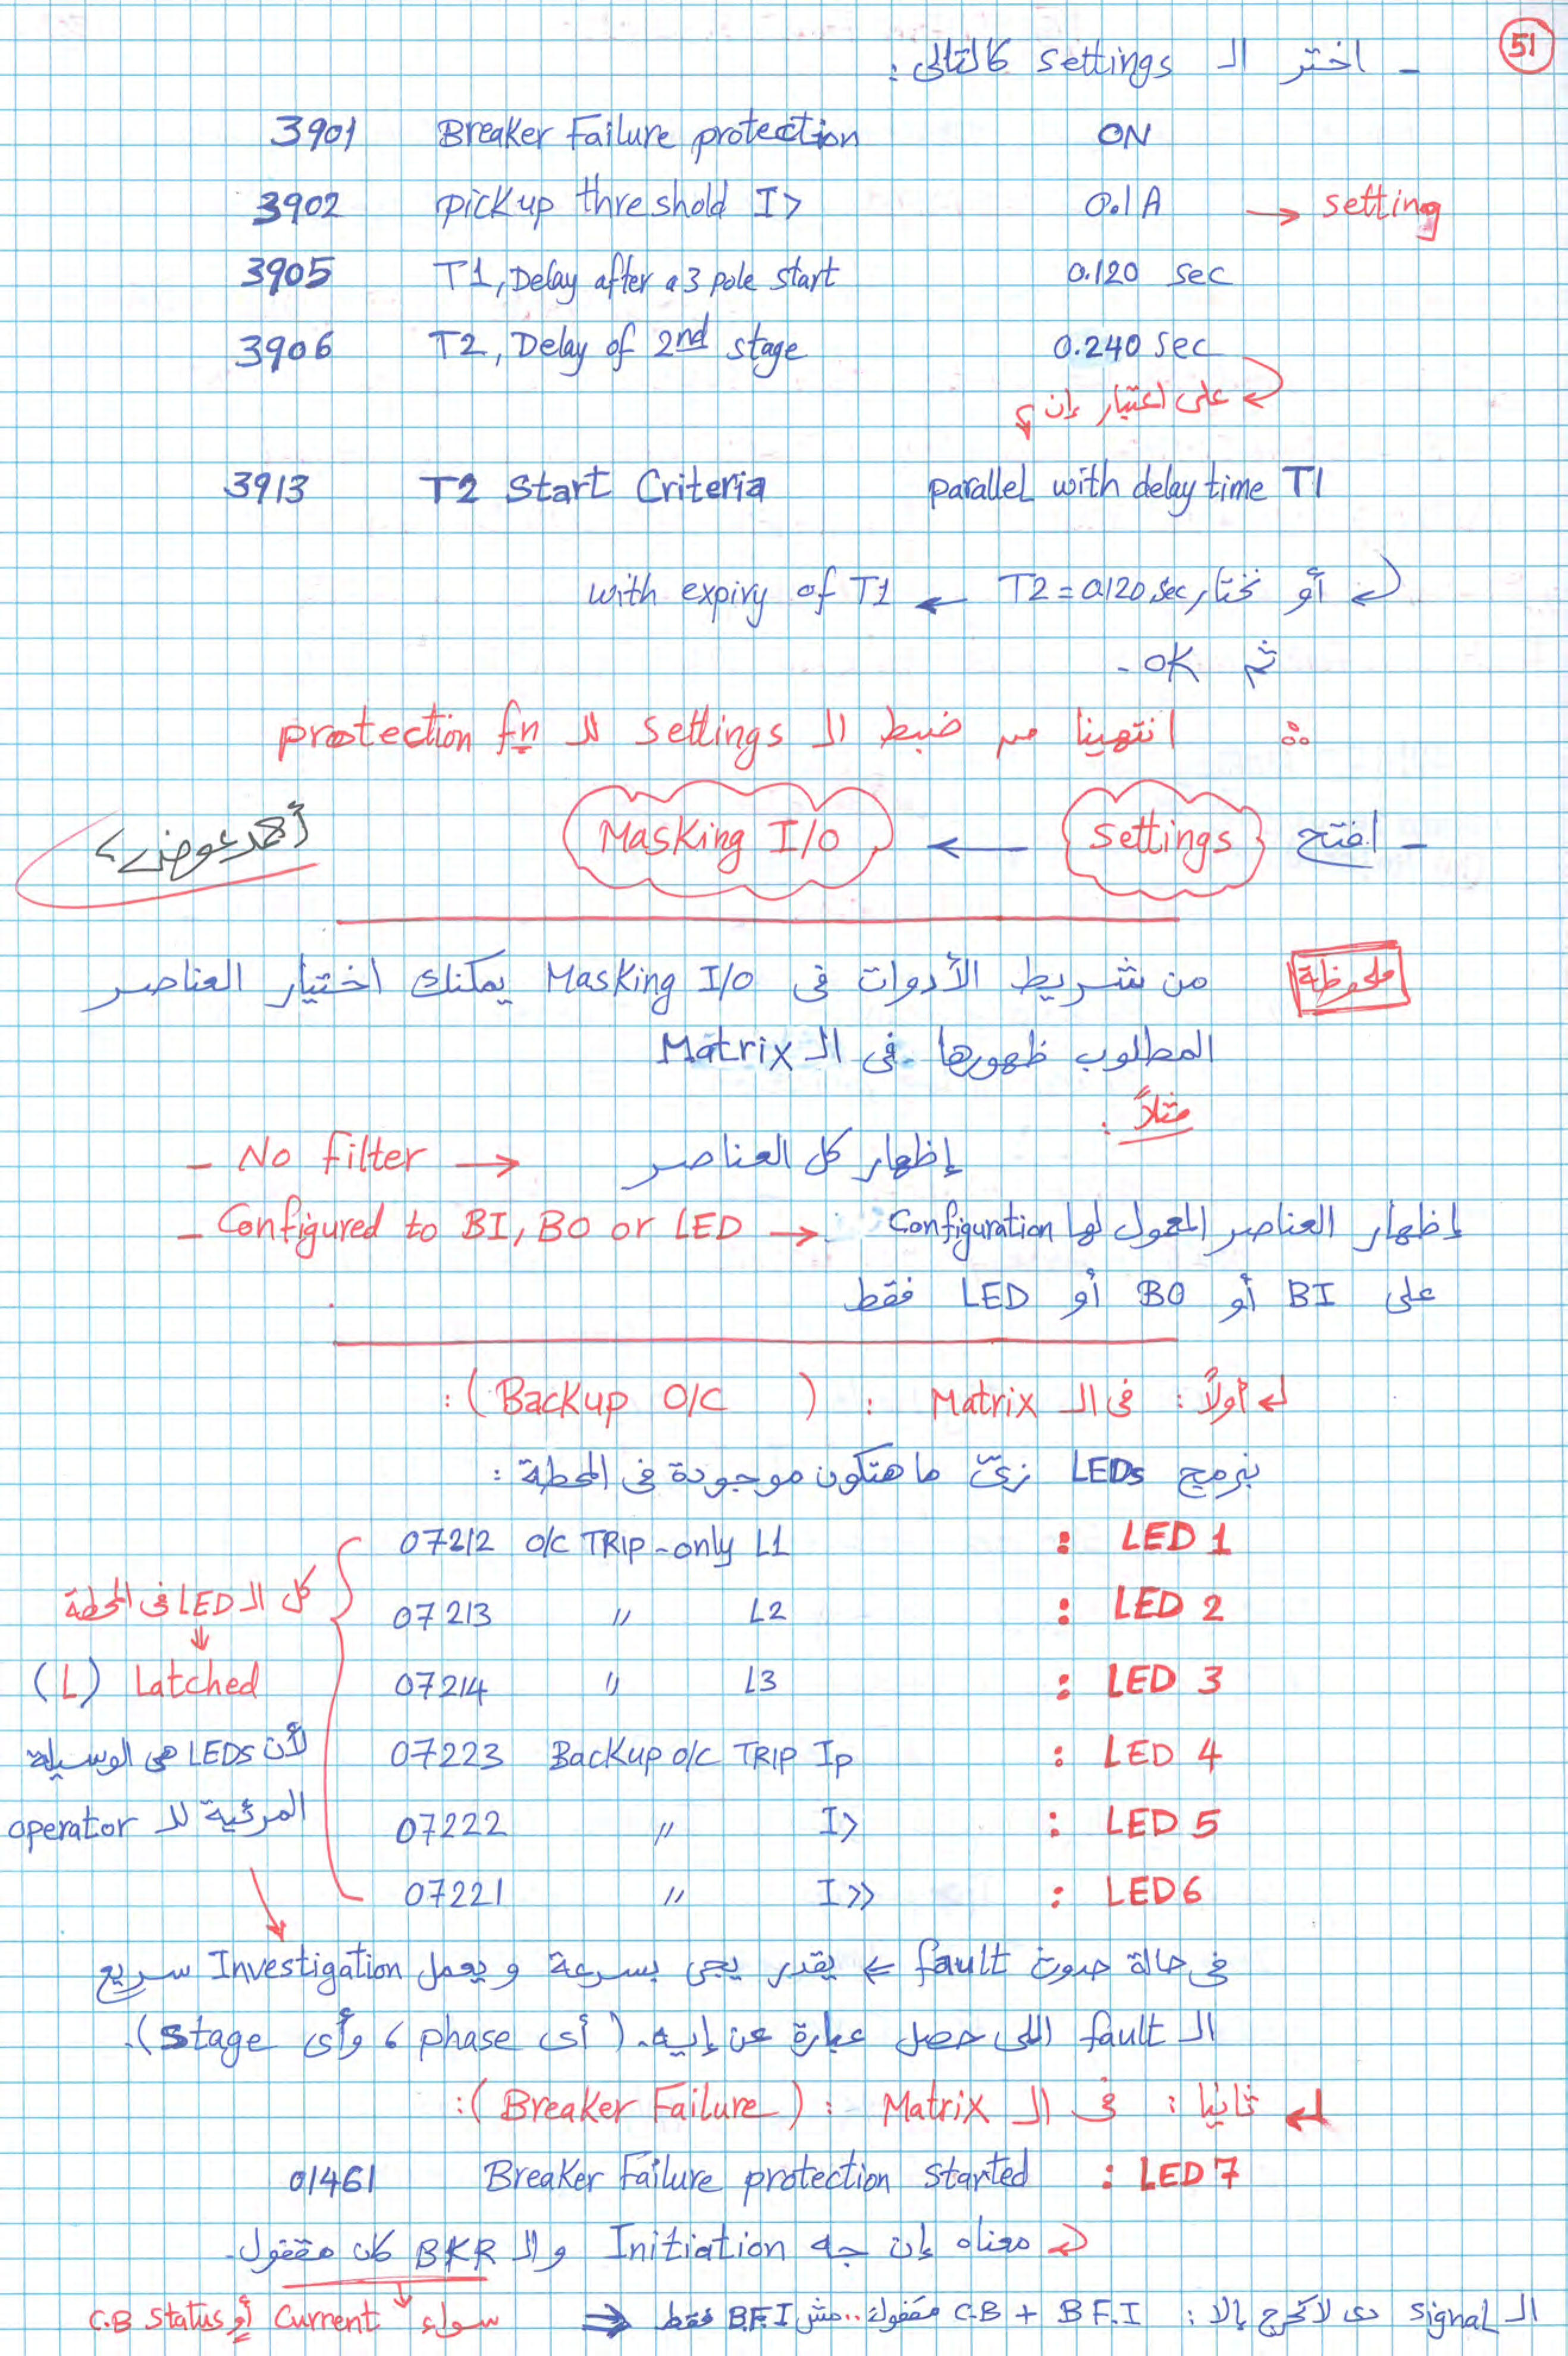 51
- اختر الـ settings كالتالى :
3901 Breaker Failure protection ON
3902 pickup threshold I> 0.1A → setting
3905 T1, Delay after a 3 pole start 0.120 sec
3906 T2, Delay of 2nd stage 0.240 sec
على اعتبار إن
3913 T2 Start Criteria parallel with delay time T1
أو نختار T2 = 0.120 sec ← with expiry of T1
ثم OK -
∴ انتهينا من ضبط الـ settings للـ protection fn
- افتح Settings ← Masking I/O
أحمد عوض
ملحوظة
من شريط الأدوات فى Masking I/O يمكنك اختيار العناصر
المطلوب ظهورها فى الـ Matrix
مثلاً :
- No filter → إظهار كل العناصر
- Configured to BI, BO or LED → إظهار العناصر المعمول لها Configuration
على BI أو BO أو LED فقط
أولاً : فى الـ Matrix : (Backup O/C) :
نبرمج LEDs زىّ ما هتكون موجودة فى المحطة :
07212 O/C TRIP - only L1 : LED 1
07213 " L2 : LED 2
07214 " L3 : LED 3
07223 Backup O/C TRIP Ip : LED 4
07222 " I> : LED 5
07221 " I>> : LED 6
كل الـ LED فى المحطة
⇓
(L) Latched
لأن LEDs هى الوسيلة
المرئية للـ operator
فى حالة حدوث fault ⇐ يقدر يجى بسرعة و يعمل Investigation سريع
الـ fault اللى حصل عبارة عن إيه. (أى phase ، وأى stage).
ثانيًا : فى الـ Matrix : (Breaker Failure) :
01461 Breaker Failure protection started : LED 7
معناه إن جه Initiation والـ BKR كان مقفول.
الـ signal دى لا تخرج إلا : C.B + B.F.I مقفول.. مش B.F.I فقط ⇒ سواء Current أو C.B Status